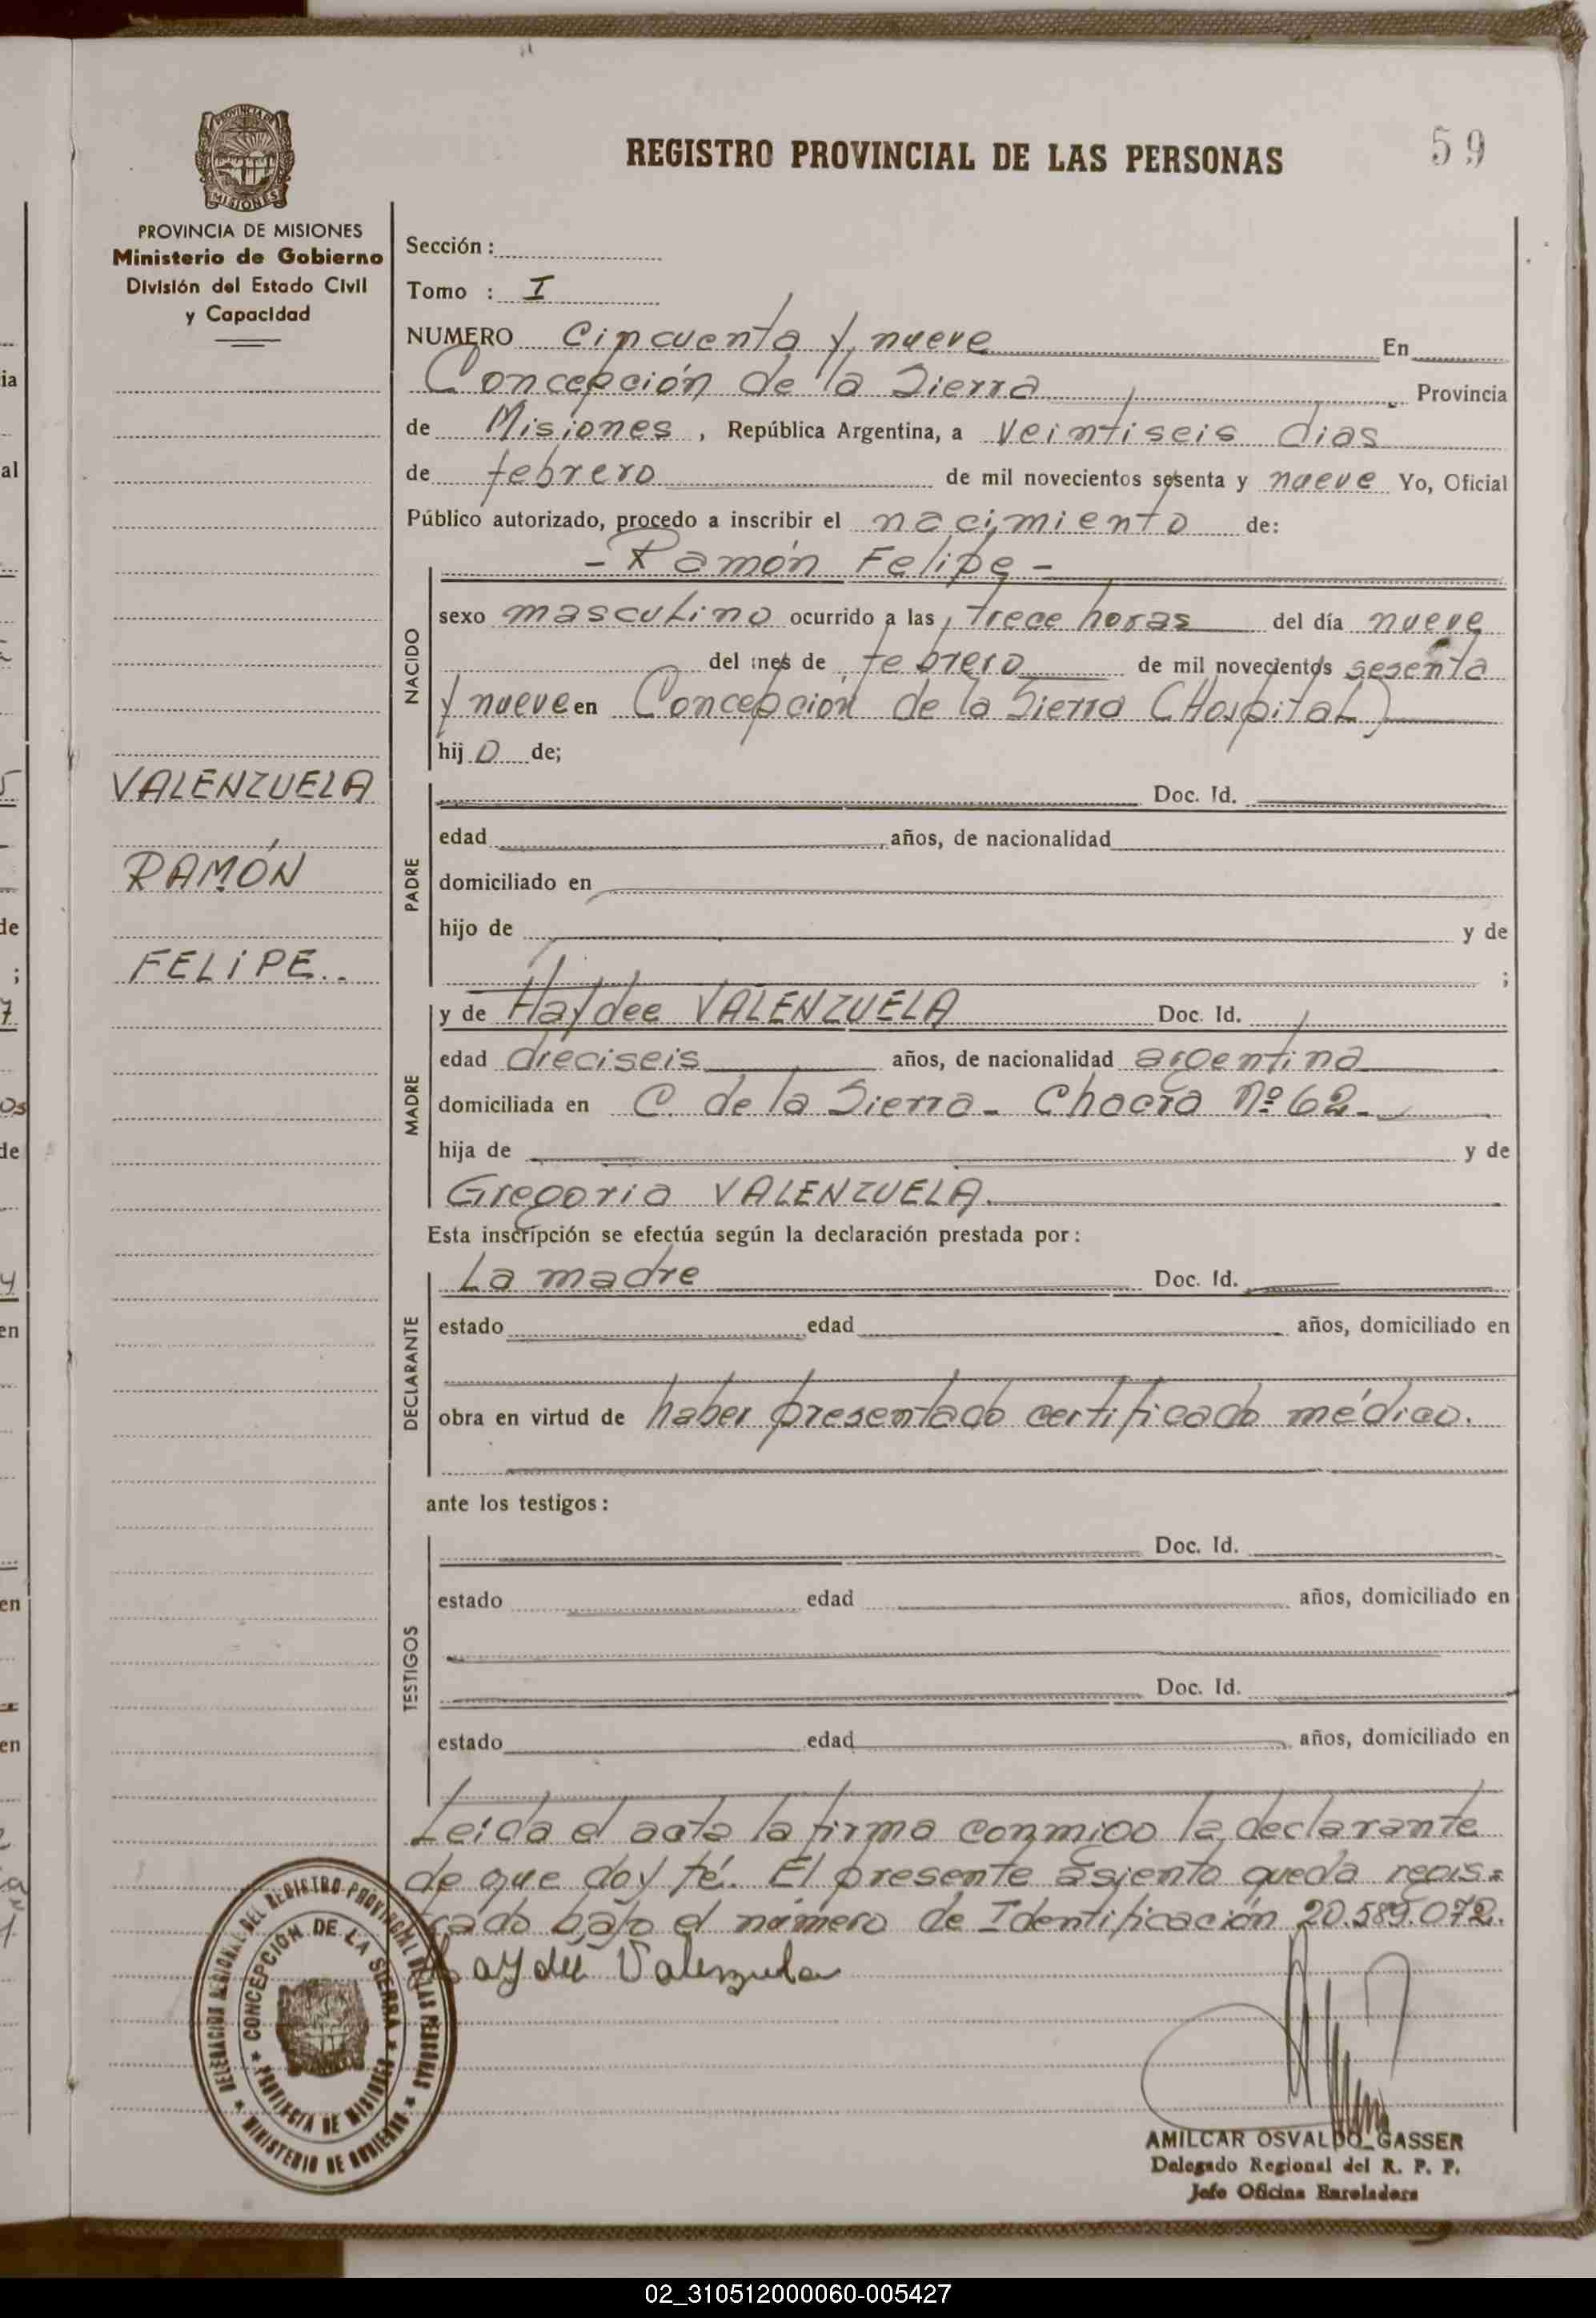 59
PROVINCIA DE MISIONES
REGISTRO PROVINCIAL DE LAS PERSONAS
PROVINCIA DE MISIONES
Ministerio de Gobierno
División del Estado Civil
y Capacidad
VALENZUELA
RAMÓN
FELIPE..
Sección :
Tomo : I
NUMERO Cincuenta y nueve En
Concepción de la Sierra Provincia
de Misiones, República Argentina, a Veintiseis dias
de febrero de mil novecientos sesenta y nueve Yo, Oficial
Público autorizado, procedo a inscribir el nacimiento de:
- Ramón Felipe -
NACIDO
sexo masculino ocurrido a las trece horas del día nueve
del mes de febrero de mil novecientos sesenta
y nueve en Concepción de la Sierra (Hospital)
hijo de;
PADRE
Doc. Id.
edad años, de nacionalidad
domiciliado en
hijo de y de
;
MADRE
y de Haydee VALENZUELA Doc. Id.
edad dieciseis años, de nacionalidad argentina
domiciliada en C. de la Sierra - Chacra Nº 62.-
hija de y de
Gregoria VALENZUELA.
Esta inscripción se efectúa según la declaración prestada por :
DECLARANTE
La madre Doc. Id.
estado edad años, domiciliado en
obra en virtud de haber presentado certificado médico.
ante los testigos :
TESTIGOS
Doc. Id.
estado edad años, domiciliado en
Doc. Id.
estado edad años, domiciliado en
Leida el acta la firma conmigo la declarante
de que doy fé. El presente asiento queda regis=
trado bajo el número de Identificación 20.589.072.
Haydée Valenzuela
DELEGACION REGIONAL DEL REGISTRO PROVINCIAL DE LAS PERSONAS
MINISTERIO DE GOBIERNO
CONCEPCIÓN DE LA SIERRA
PROVINCIA DE MISIONES
AMILCAR OSVALDO GASSER
Delegado Regional del R. P. P.
Jefe Oficina Enroladora
02_310512000060-005427